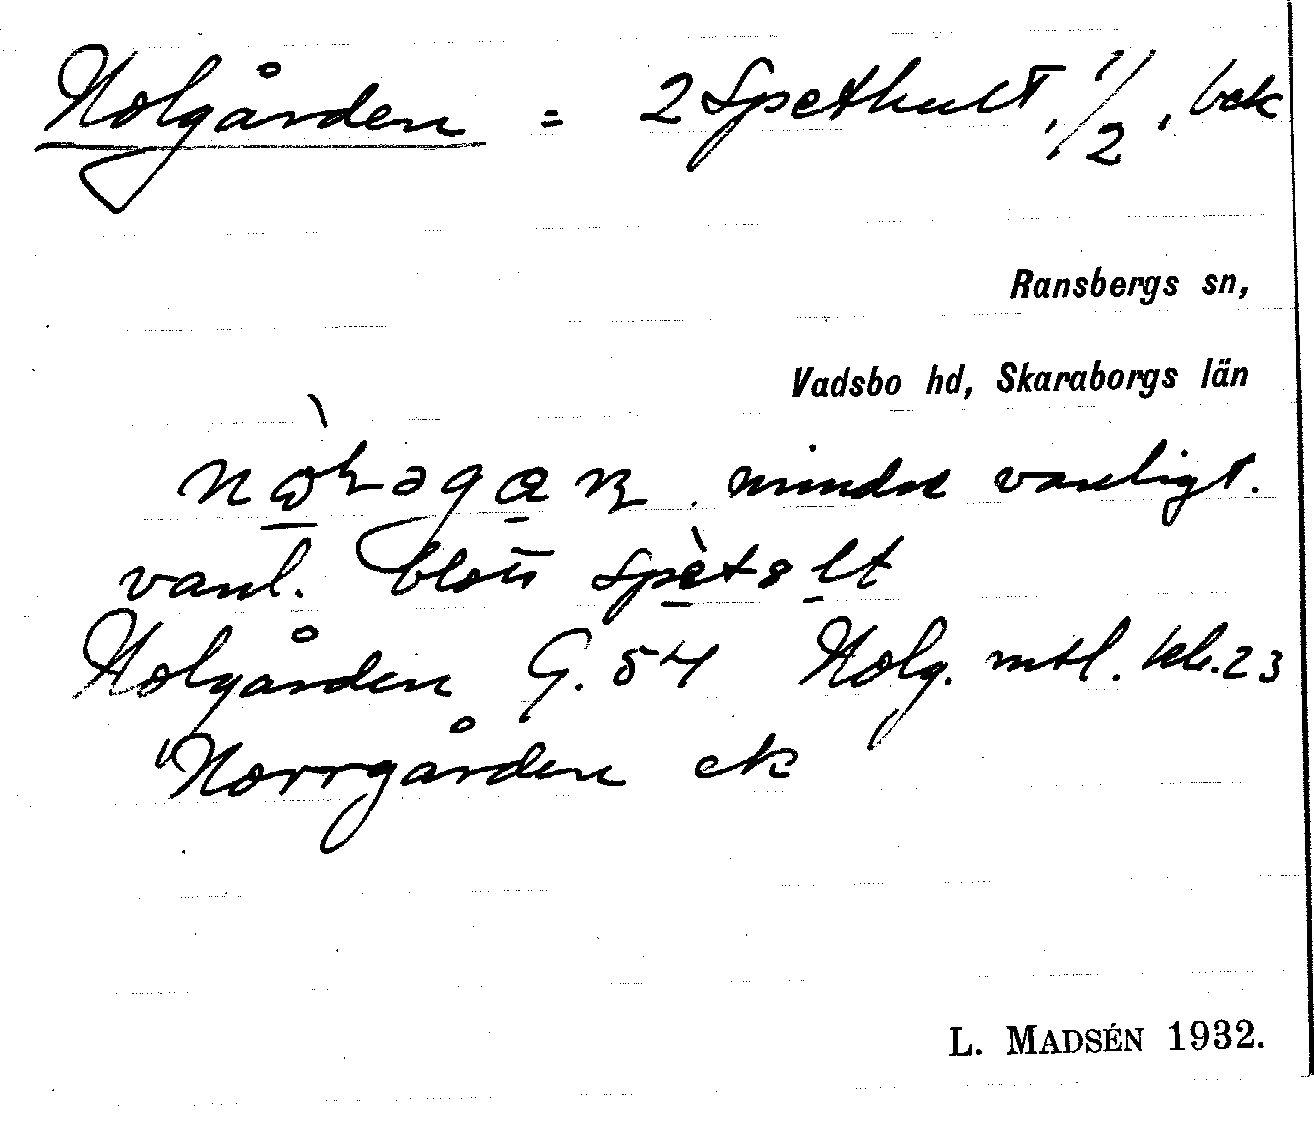 Nolgården = 2 Spethult 1/2, bek
Ransbergs sn,
Vadsbo hd, Skaraborgs län
mindre vanligt.
vanl. blott
Nolgården G. 54 Nolg. mtl. kb. 23
"Norrgården ek
L. MADSÉN 1932.